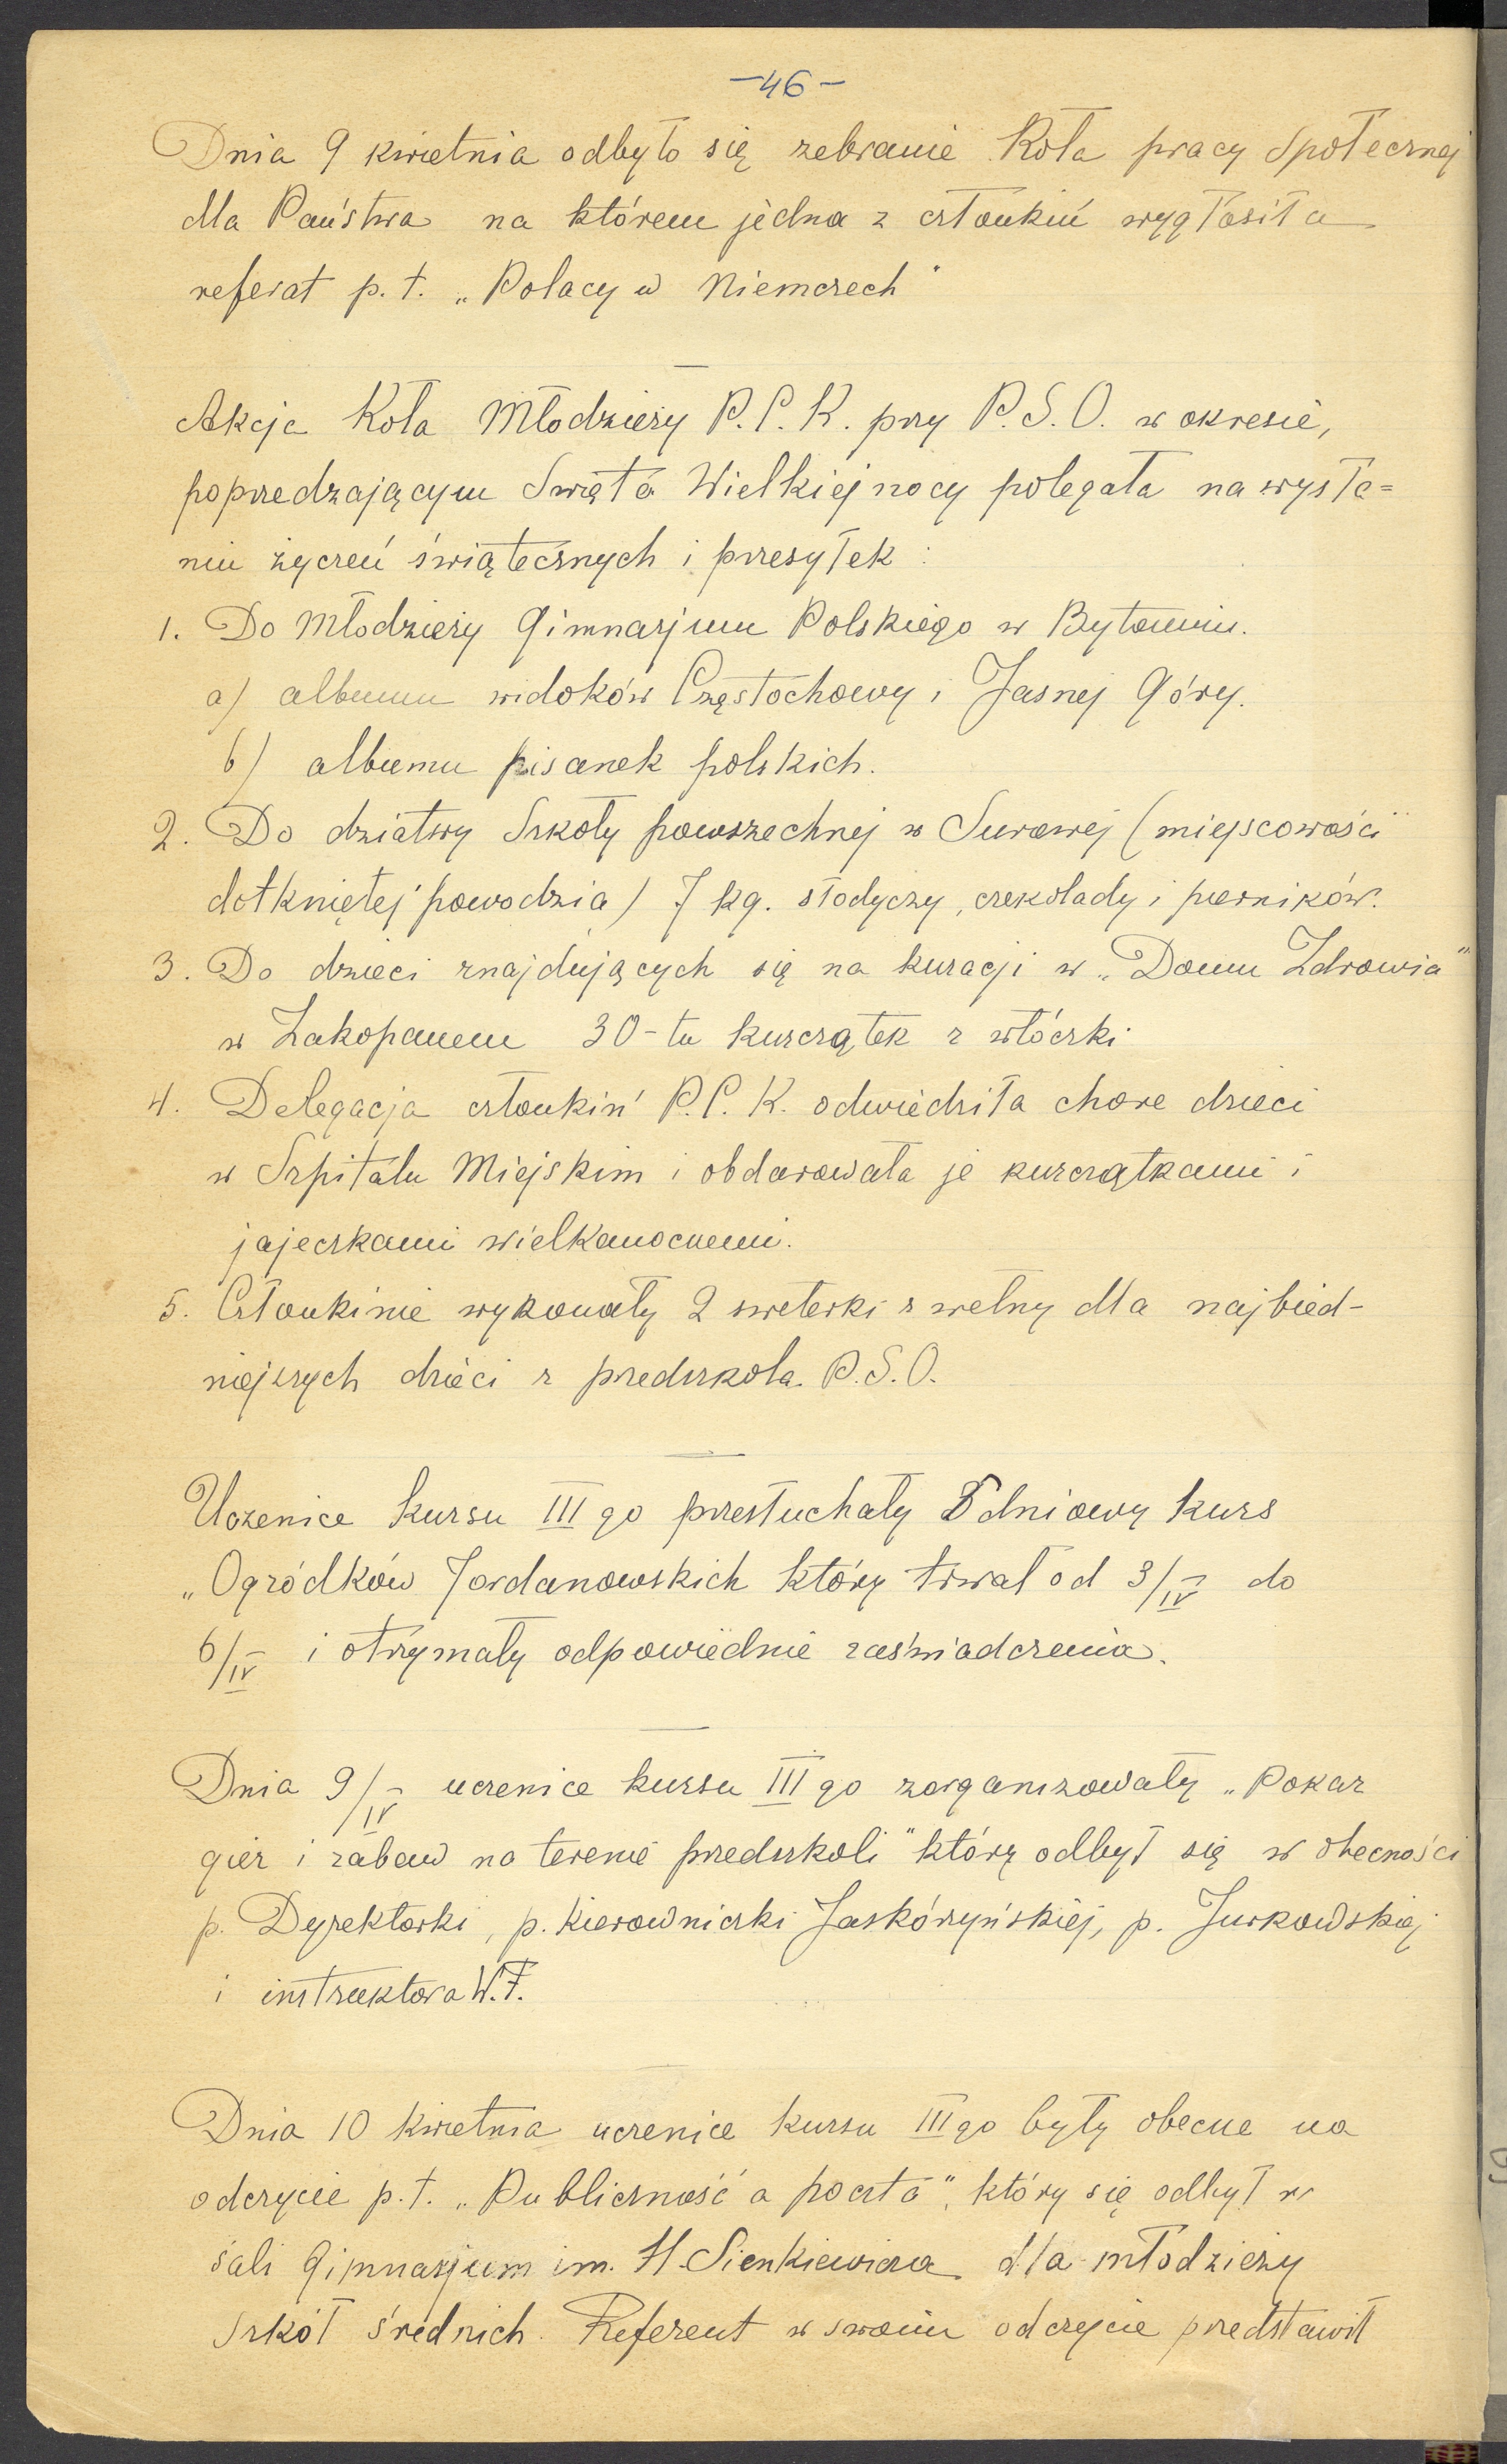 -46-
Dnia 9 kwietnia odbyło się zebranie Koła pracy Społecznej
dla Państwa na którem jedna z członkiń wygłosiła
referat p.t. „Polacy w Niemczech"
Akcja Koła Młodzieży P.C.K. przy P.S.O. w okresie,
poprzedzającym Święta Wielkiejnocy polegała na wysła=
niu życzeń świątecznych i przesyłek:
1. Do Młodzieży Gimnazjum Polskiego w Bytomiu.
a) albumu widoków Częstochowy i Jasnej Góry.
b) albumu pisanek polskich.
2. Do dziatwy Szkoły powszechnej w Surowej (miejscowości
dotkniętej powodzią) 7 kg. słodyczy, czekolady i pierników.
3. Do dzieci znajdujących się na kuracji w „Domu Zdrowia"
w Zakopanem 30-tu kurczątek z włóczki
4. Delegacja członkiń P.C.K. odwiedziła chore dzieci
w Szpitalu Miejskim i obdarowała je kurczątkami i
jajeczkami wielkanocnemi.
5. Członkinie wykonały 2 sweterki z wełny dla najbied-
niejszych dzieci z przedszkola P.S.O.
Uczenice kursu III go przesłuchały 5 dniowy kurs
„Ogródków Jordanowskich który trwał od 3/IV do
6/IV i otrzymały odpowiednie zaświadczenia.
Dnia 9/IV uczenice kursu III go zorganizowały „Pokaz
gier i zabaw na terenie przedszkoli" który odbył się w obecności
p. Dyrektorki, p. kierowniczki Jaskórzyńskiej, p. Jurkowskiej
i instruktora W.F.
Dnia 10 kwietnia uczenice kursu III go były obecne na
odczycie p.t. „Publiczność a poczta", który się odbył w
sali Gimnazjum im. H. Sienkiewicza dla młodzieży
szkół średnich. Referent w swoim odczycie przedstawił